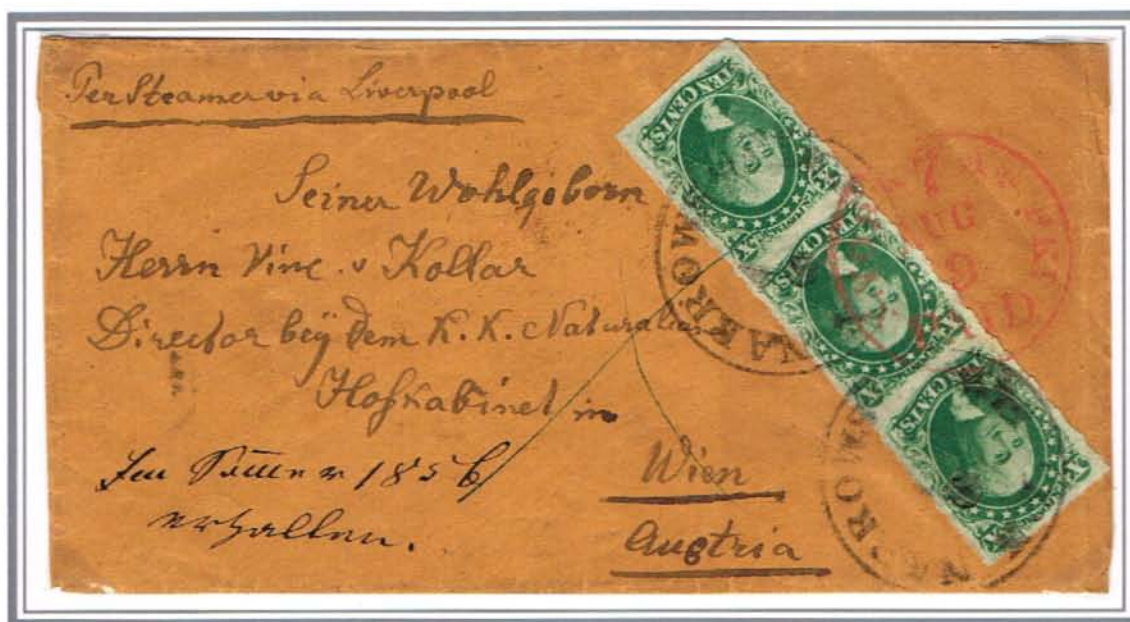 Per Steamer via Liverpool
Seiner Wohlgeborn
Herrn Vinc. v Kollar
Director beÿ dem K. K. Naturalien
Hofkabinet in
Wien
Austria
Im Sommer 1856
erhalten.
TEN CENTS
TEN CENTS
TEN CENTS
7
AUG
9
PAID